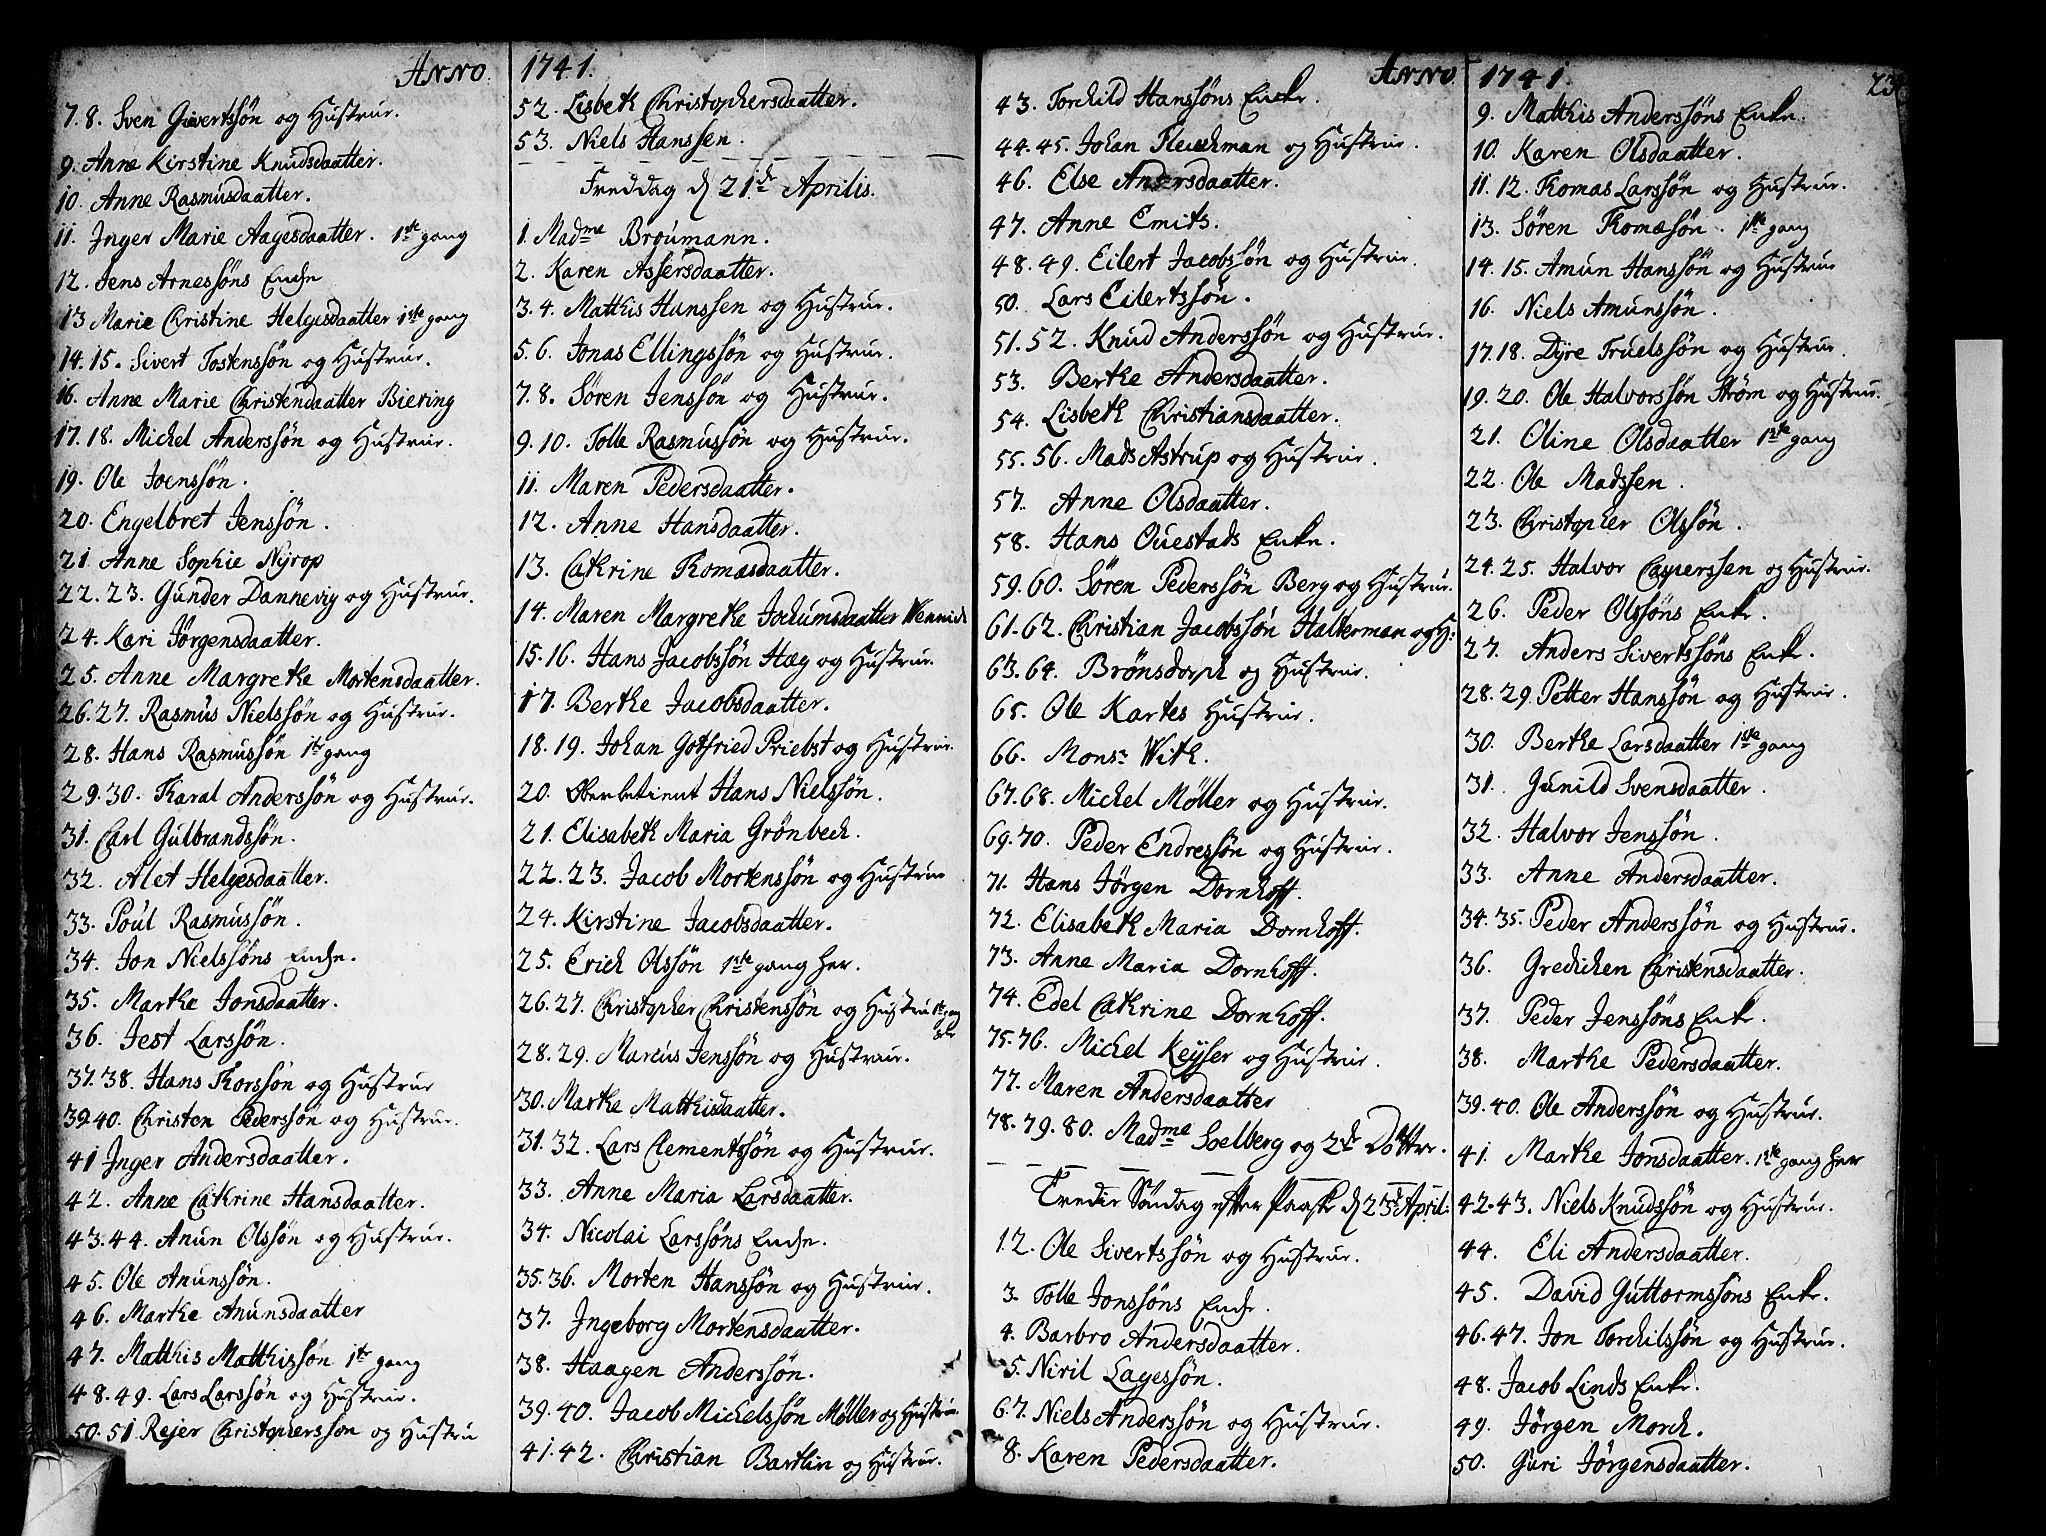 Anno
7. 8. Sven Givertsön og Hustrue.
9. Anne Kirstine Knudsdaatter.
10. Anne Rasmusdaatter.
11. Inger Marie Aagesdaatter. 1ste gang
12. Jens Arnessöns Enche
13 Marie Christine Helgesdaatter 1ste gang
14. 15. Sivert Tostenssön og Hustrue.
16. Anne Marie Christendaatter Biering
17. 18. Michel Anderssön og Hustrue.
19. Ole Joenssön.
20. Engelbret Jenssön.
21 Anne Sophie Nÿrop
22. 23. Gunder Dannevig og Hustrue.
24. Kari Jörgensdaatter.
25. Anne Margrethe Mortensdaatter.
26. 27. Rasmus Nielssön og Hustrue.
28. Hans Rasmussön 1te gang
29. 30. Tharal Anderssön og Hustrue.
31. Carl Gulbrandssön.
32. Alet Helgesdaatter.
33. Poul Rasmussön.
34. Jon Nielssöns Enche.
35. Marthe Jonsdaatter.
36. Jest Larssön.
37. 38. Hans Thorssön og Hustrue
39 40. Christen Pederssön og Hustrue.
41 Inger Andersdaatter.
42. Anne Cathrine Hansdaatter.
43. 44. Anun Olssön og Hustrue.
45. Ole Anunssön.
46. Marthe Anunsdaatter
47. Matthis Matthissön 1te gang
48. 49. Lars Larssön og Hustrue.
50. 51 Rejer Christopherssön og Hustru
1741.
52. Lisbeth Christophersdaatter.
53. Niels Hanssen.
Freddag d 21de Aprilis.
1. Madme Broumann.
2. Karen Assersdaatter.
3. 4. Matthis Hanssen og Hustrue.
5. 6. Jonas Ellingssön og Hustrue.
7. 8. Sören Jenssön og Hustrue.
9. 10. Tolle Rasmussön og Hustrue.
11. Maren Pedersdaatter.
12. Anne Hansdaatter.
13. Cathrine Thomasdaatter.
14. Maren Margrethe Jochumsdaatter Wennich
15. 16. Hans Jacobssön Hæg og Hustrue.
17. Berthe Jacobsdaatter.
18. 19. Johan Gotfried Priebst og Hustrue.
20. Oberbetient Hans Nielssön.
21. Elisabeth Maria Grönbech.
22. 23. Jacob Mortenssön og Hustrue
24. Kirstine Jacobsdaatter.
25. Erich Olssön 1ste gang her.
26. 27. Christopher Christenssön og Hustru 1te gang
her
28. 29. Marcus Jenssön og Hustrue.
30. Marthe Matthisdaatter.
31. 32. Lars Clementssön og Hustrue.
33. Anne Maria Larsdaatter.
34. Nicolai Larssöns Enche.
35. 36. Morten Hanssön og Hustrue.
37. Ingeborg Mortensdaatter.
38. Haagen Anderssön.
39. 40. Jacob Michelssön Møller og Hustrue.
41. 42. Christian Bartlin og Hustrue.
Anno
43. Torchild Hanssöns Encke.
44. 45. Johan Fleuchman og Hustrue.
46. Else Andersdaatter.
47. Anne Emits.
48. 49. Eilert Jacobssön og Hustrue.
50. Lars Eilertssön.
51. 52. Knud Anderssön og Hustrue.
53. Berthe Andersdaatter.
54. Lisbeth Christiansdaatter.
55. 56. Mads Astrup og Hustrue.
57. Anne Olsdaatter.
58. Hans Ouestads Enke.
59. 60. Sören Pederssön Berg og Hustrue.
61. 62. Christian Jacobssön Halterman og H:
63. 64. Brönsdorph og Hustrue.
65. Ole Kartes Hustrue.
66. Monsr With.
67. 68. Michel Møller og Hustrue.
69. 70. Peder Endressön og Hustrue.
71. Hans Jörgen Dornhoff.
72. Elisabeth Maria Dornhoff.
73. Anne Maria Dornhoff.
74. Edel Cathrine Dornhoff.
75. 76. Michel Keyser og Hustrue.
77. Maren Andersdaatter
78. 79. 80. Madme Soelberg og 2de Dötter.
Tredie Söndag efter Paaske d 23de April:
1 2. Ole Sivertssön og Hustrue.
3. Tolle Jonssöns Enche.
4. Barbro Andersdaatter.
5. Niril Lagessön.
6. 7. Niels Anderssön og Hustrue.
8. Karen Pedersdaatter.
1741.
9. Matthis Anderssöns Enke.
10. Karen Olsdaatter.
11. 12. Thomas Larssön og Hustrue.
13. Sören Thomæsön. 1ste gang
14. 15. Amun Hanssön og Hustrue
16. Niels Amunssön.
17. 18. Dÿre Truelssön og Hustrue.
19. 20. Ole Halvorssön Ström og Hustrue.
21. Oline Olsdaatter 1ste gang
22. Ole Madssen.
23. Christopher Olssön.
24. 25. Halvor Casperssen og Hustrue.
26. Peder Olssöns Enke.
27. Anders Sivertssöns Enke.
28. 29. Petter Hanssön og Hustrue.
30. Berthe Larsdaatter 1ste gang
31. Gunild Svensdaatter.
32. Halvor Jenssön.
33. Anne Andersdaatter.
34. 35. Peder Anderssön og Hustrue.
36. Gredichen Christensdaatter.
37. Peder Jenssöns Enke.
38. Marthe Pedersdaatter.
39. 40. Ole Anderssön og Hustrue.
41. Marthe Jonsdaatter. 1ste gang her
42. 43. Niels Knudssön og Hustrue.
44. Eli Andersdaatter.
45. David Guttormssöns Enke.
46. 47. Jon Torchilssön og Hustrue.
48. Jacob Linds Enke.
49. Jörgen Morch.
50. Guri Jörgensdaatter.